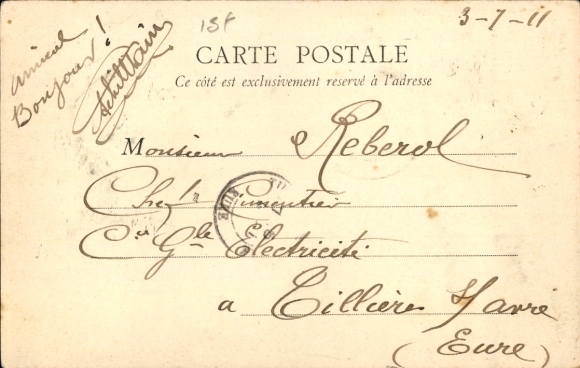 3-7-11
Amical
Bonjour!
CARTE POSTALE
Ce côté est exclusivement reservé à l'adresse
Monsieur Reberol
Chef Cimentier
Cie Gle Electricité
a Tillières s/ Avre
(Eure)